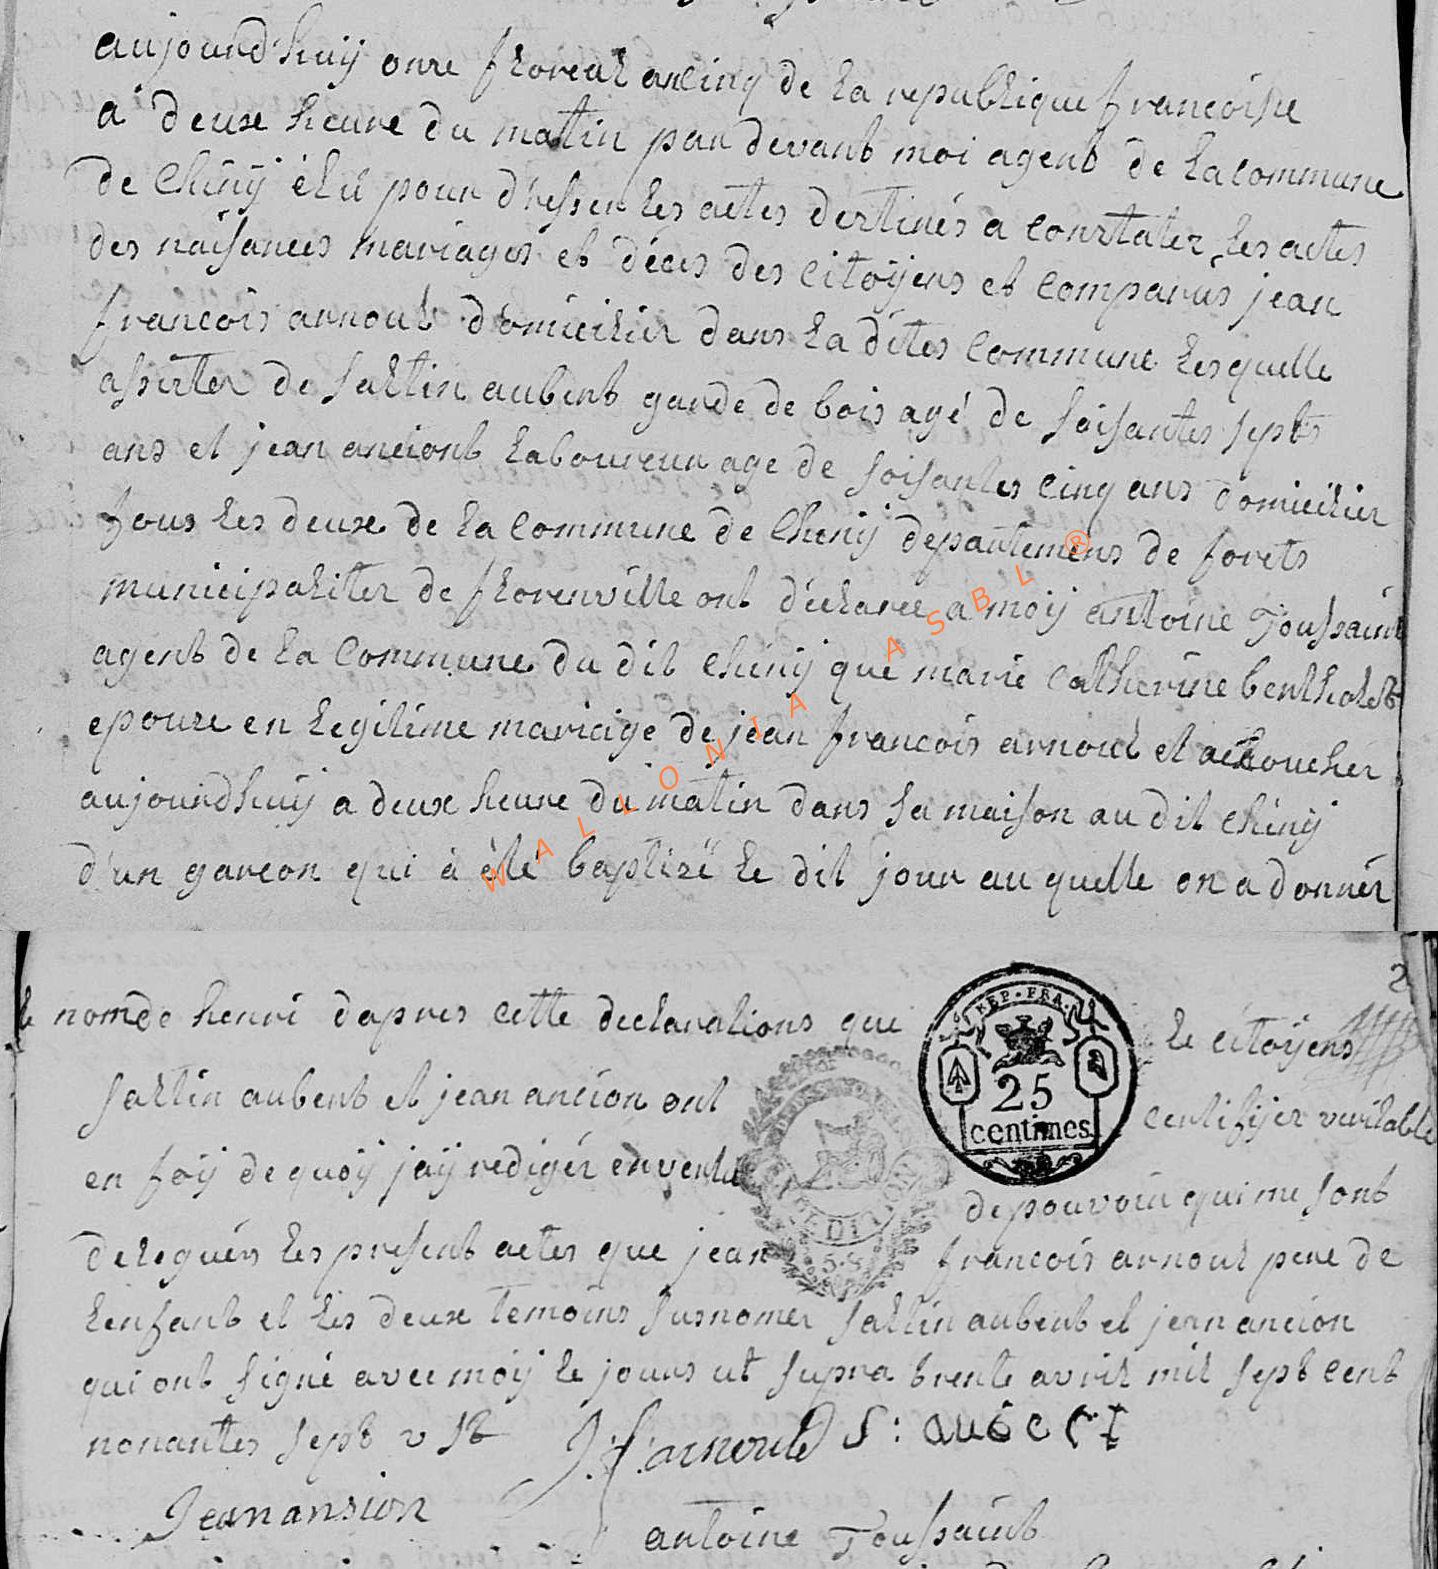 aujourdhuij onze floreal ancinq de la republique francoise
a deuxe heure du matin par devant moi agent de la commune
de Chinij élu pour dresser les actes destinés a constater les actes
des naisances mariages et déces des citoÿens et comparus jean
francois arnoul domicilier dans la dites commune lesquelle
assister de saltin aubert garde de bois agé de soisantes septs
ans et jean anciont laboureur age de soisantes cinq ans domicilier
tous les deuxe de la commune de Chinij departemens de forets
municipaliter de florenville ont déclaree a moij antoine Toussaint
agent de la Commune du dit chinij que marie catherine bertholet
epouze en legitime mariage de jean francois arnoul et accoucher
aujourdhuij a deux heure du matin dans sa maison au dit chinij
d'un garcon qui à été baptizé le dit jour au quelle on a donnér
WALLONIA ASBL ®
2
le nom de henri dapres cette declarations que le citoÿens
REP. FRA.
25
centimes
saltin aubert et jean ancion ont certifijer veritable
en foij de quoij jaij redigér en vertu de pouvoir qui me sont
deleguérs les present actes que jean francois arnoul pere de
lenfant et les deux temoins susnomer saltin aubert et jean ancion
qui ont signé avec moij le jours ut supra trente avril mil sept cent
nonantes sept v st
J f arnould S : aubert
Jean ansion
antoine Toussaint